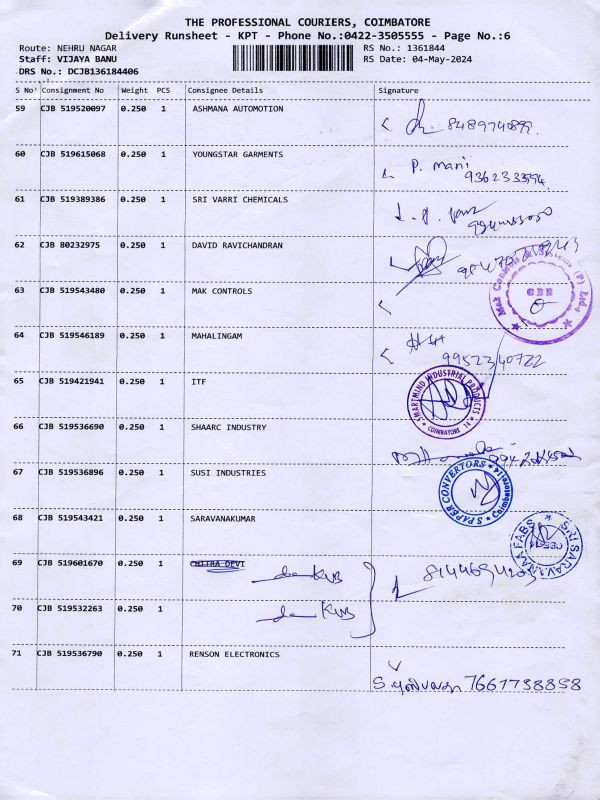 THE PROFESSIONAL COURIERS, COIMBATORE
Delivery Runsheet - KPT - Phone No.:0422-3505555 - Page No.:6
Route: NEHRU NAGAR
RS No.: 1361844
Staff: VIJAYA BANU
RS Date: 04-May-2024
DRS No.: DCJB136184406
S No' Consignment No Weight PCS Consignee Details Signature
59 CJB 519520097 0.250 1 ASHMANA AUTOMATION
8489740899
60 CJB 519615068 0.250 1 YOUNGSTAR GARMENTS
P. Mani
61 CJB 519389386 0.250 1 SRI VARRI CHEMICALS
62 CJB 80232975 0.250 1 DAVID RAVICHANDRAN
63 CJB 519543480 0.250 1 MAK CONTROLS
Mak Controls & Systems (P) Ltd.,
CBE
64 CJB 519546189 0.250 1 MAHALINGAM
9952340722
65 CJB 519421941 0.250 1 ITF
SMARTMIND INDUSTRIAL PRODUCTS
COIMBATORE 14
66 CJB 519536690 0.250 1 SHAARC INDUSTRY
67 CJB 519536896 0.250 1 SUSI INDUSTRIES
S PAPER CONVERTORS
Coimbatore-14
68 CJB 519543421 0.250 1 SARAVANAKUMAR
SRI SARAVANAA FABS
69 CJB 519601670 0.250 1 CHITRA DEVI
KVB
70 CJB 519532263 0.250 1
KVB
71 CJB 519536790 0.250 1 RENSON ELECTRONICS
7661758858